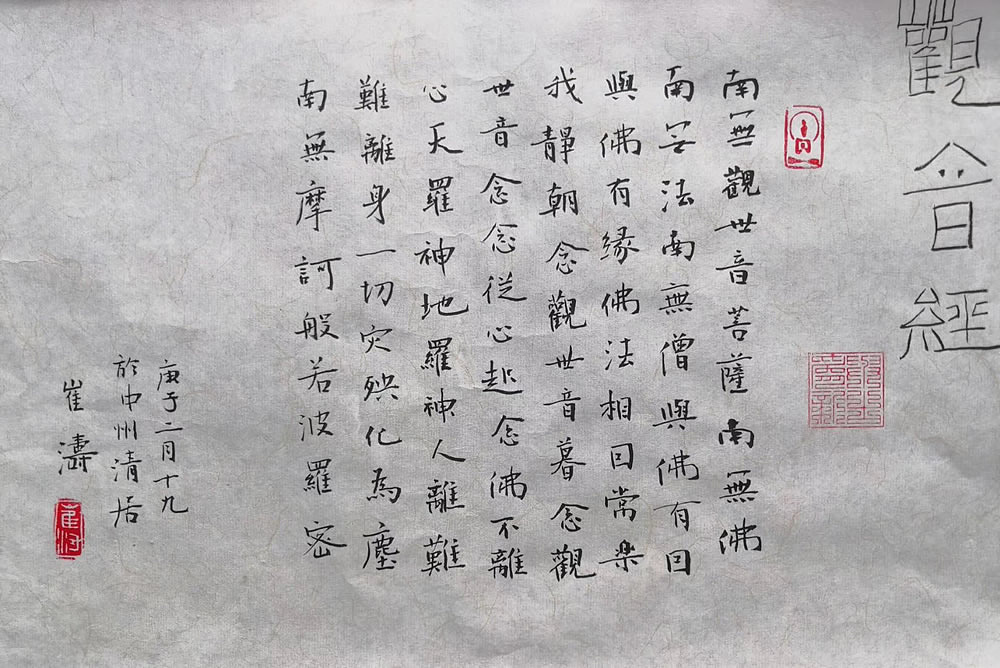 觀音經
南無觀世音菩薩南無佛
南无法南無僧與佛有因
與佛有緣佛法相因常樂
我靜朝念觀世音暮念觀
世音念念從心起念佛不離
心天羅神地羅神人離難
難離身一切灾殃化為塵
南無摩訶般若波羅密
庚子二月十九
於中州清居
崔濤